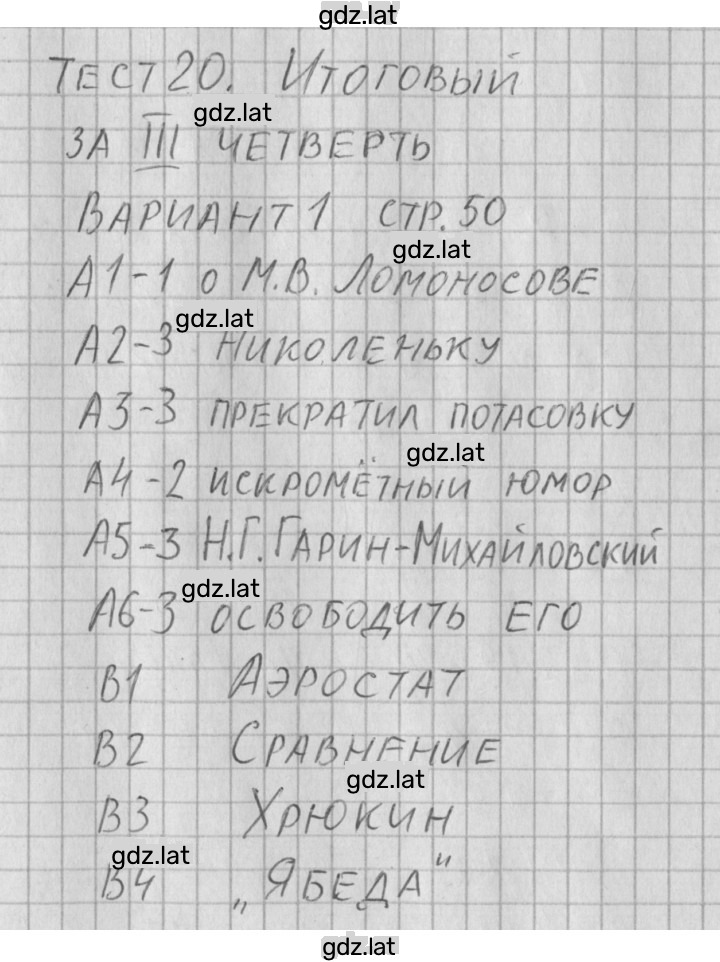 gdz.lat
ТЕСТ 20. ИТОГОВЫЙ
gdz.lat
ЗА III ЧЕТВЕРТЬ
ВАРИАНТ 1 СТР. 50
gdz.lat
А1-1 О М.В. ЛОМОНОСОВЕ
gdz.lat
А2-3 НИКОЛЕНЬКУ
А3-3 ПРЕКРАТИЛ ПОТАСОВКУ
gdz.lat
А4-2 ИСКРОМЁТНЫЙ ЮМОР
А5-3 Н.Г. ГАРИН-МИХАЙЛОВСКИЙ
gdz.lat
А6-3 ОСВОБОДИТЬ ЕГО
В1 АЭРОСТАТ
В2 СРАВНЕНИЕ
gdz.lat
В3 ХРЮКИН
gdz.lat
В4 „ЯБЕДА"
gdz.lat